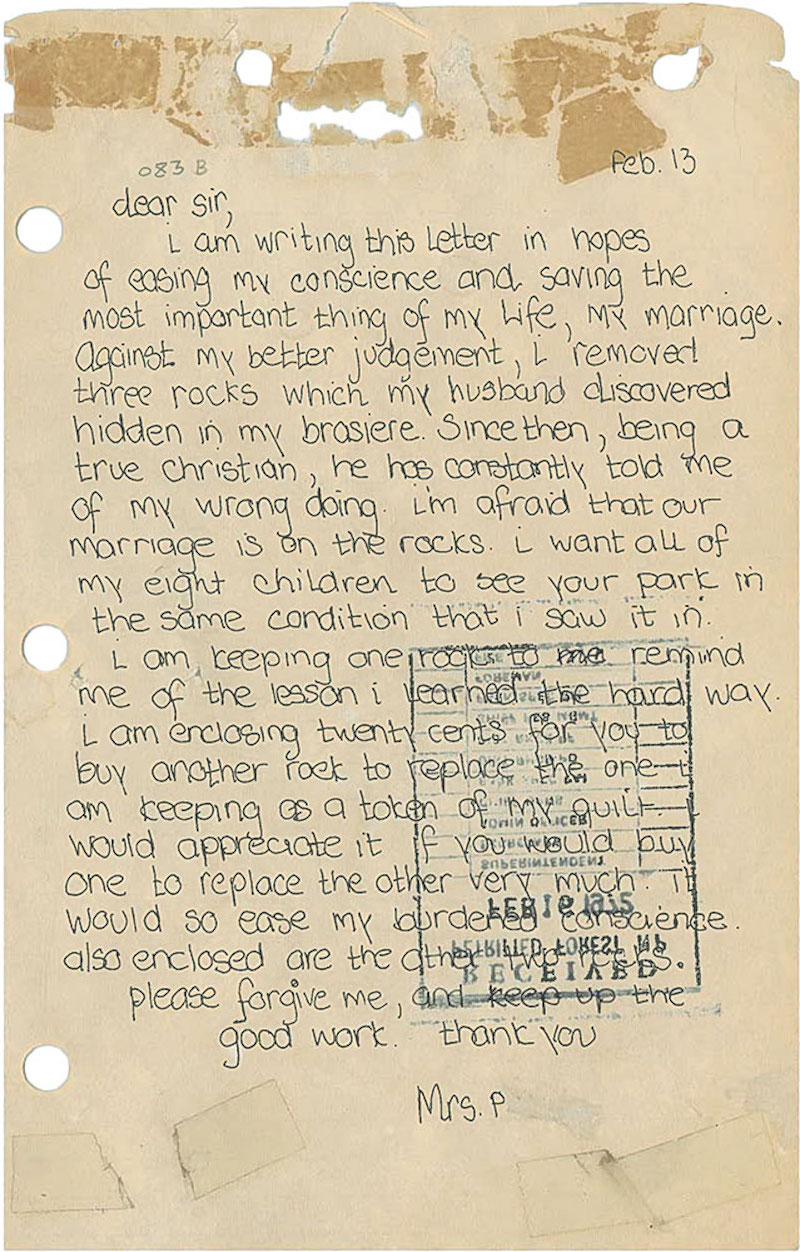 083 B
feb. 13
dear sir,
i am writing this letter in hopes
of easing my conscience and saving the
most important thing of my life, my marriage.
Against my better judgement, i removed
three rocks which my husband discovered
hidden in my brasiere. Since then, being a
true christian, he has constantly told me
of my wrong doing. i'm afraid that our
marriage is on the rocks. i want all of
my eight children to see your park in
the same condition that i saw it in.
i am keeping one rock to me remind
me of the lesson i learned the hard way.
i am enclosing twenty cents for you to
buy another rock to replace the one i
am keeping as a token of my guilt. i
would appreciate it if you would buy
one to replace the other very much. it
would so ease my burdened conscience.
also enclosed are the other two rocks.
please forgive me, and keep up the
good work. thank you
Mrs. P
RECEIVED
PETRIFIED FOREST NP
FEB 16 1972
SUPERINTENDENT
ADMIN OFFICER
FOREMAN